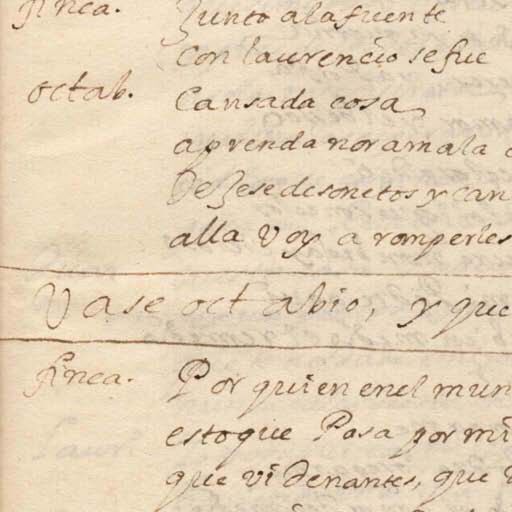 finea. Junto a la fuente
Con laurencio se fue
octab. Cansada cosa
aprenda noramala
Dejese de sonetos y can
alla Voy a romperles
Vase octabio, y que
finea. Por quien en el mun
esto que Pasa por mi
que vi denantes, que